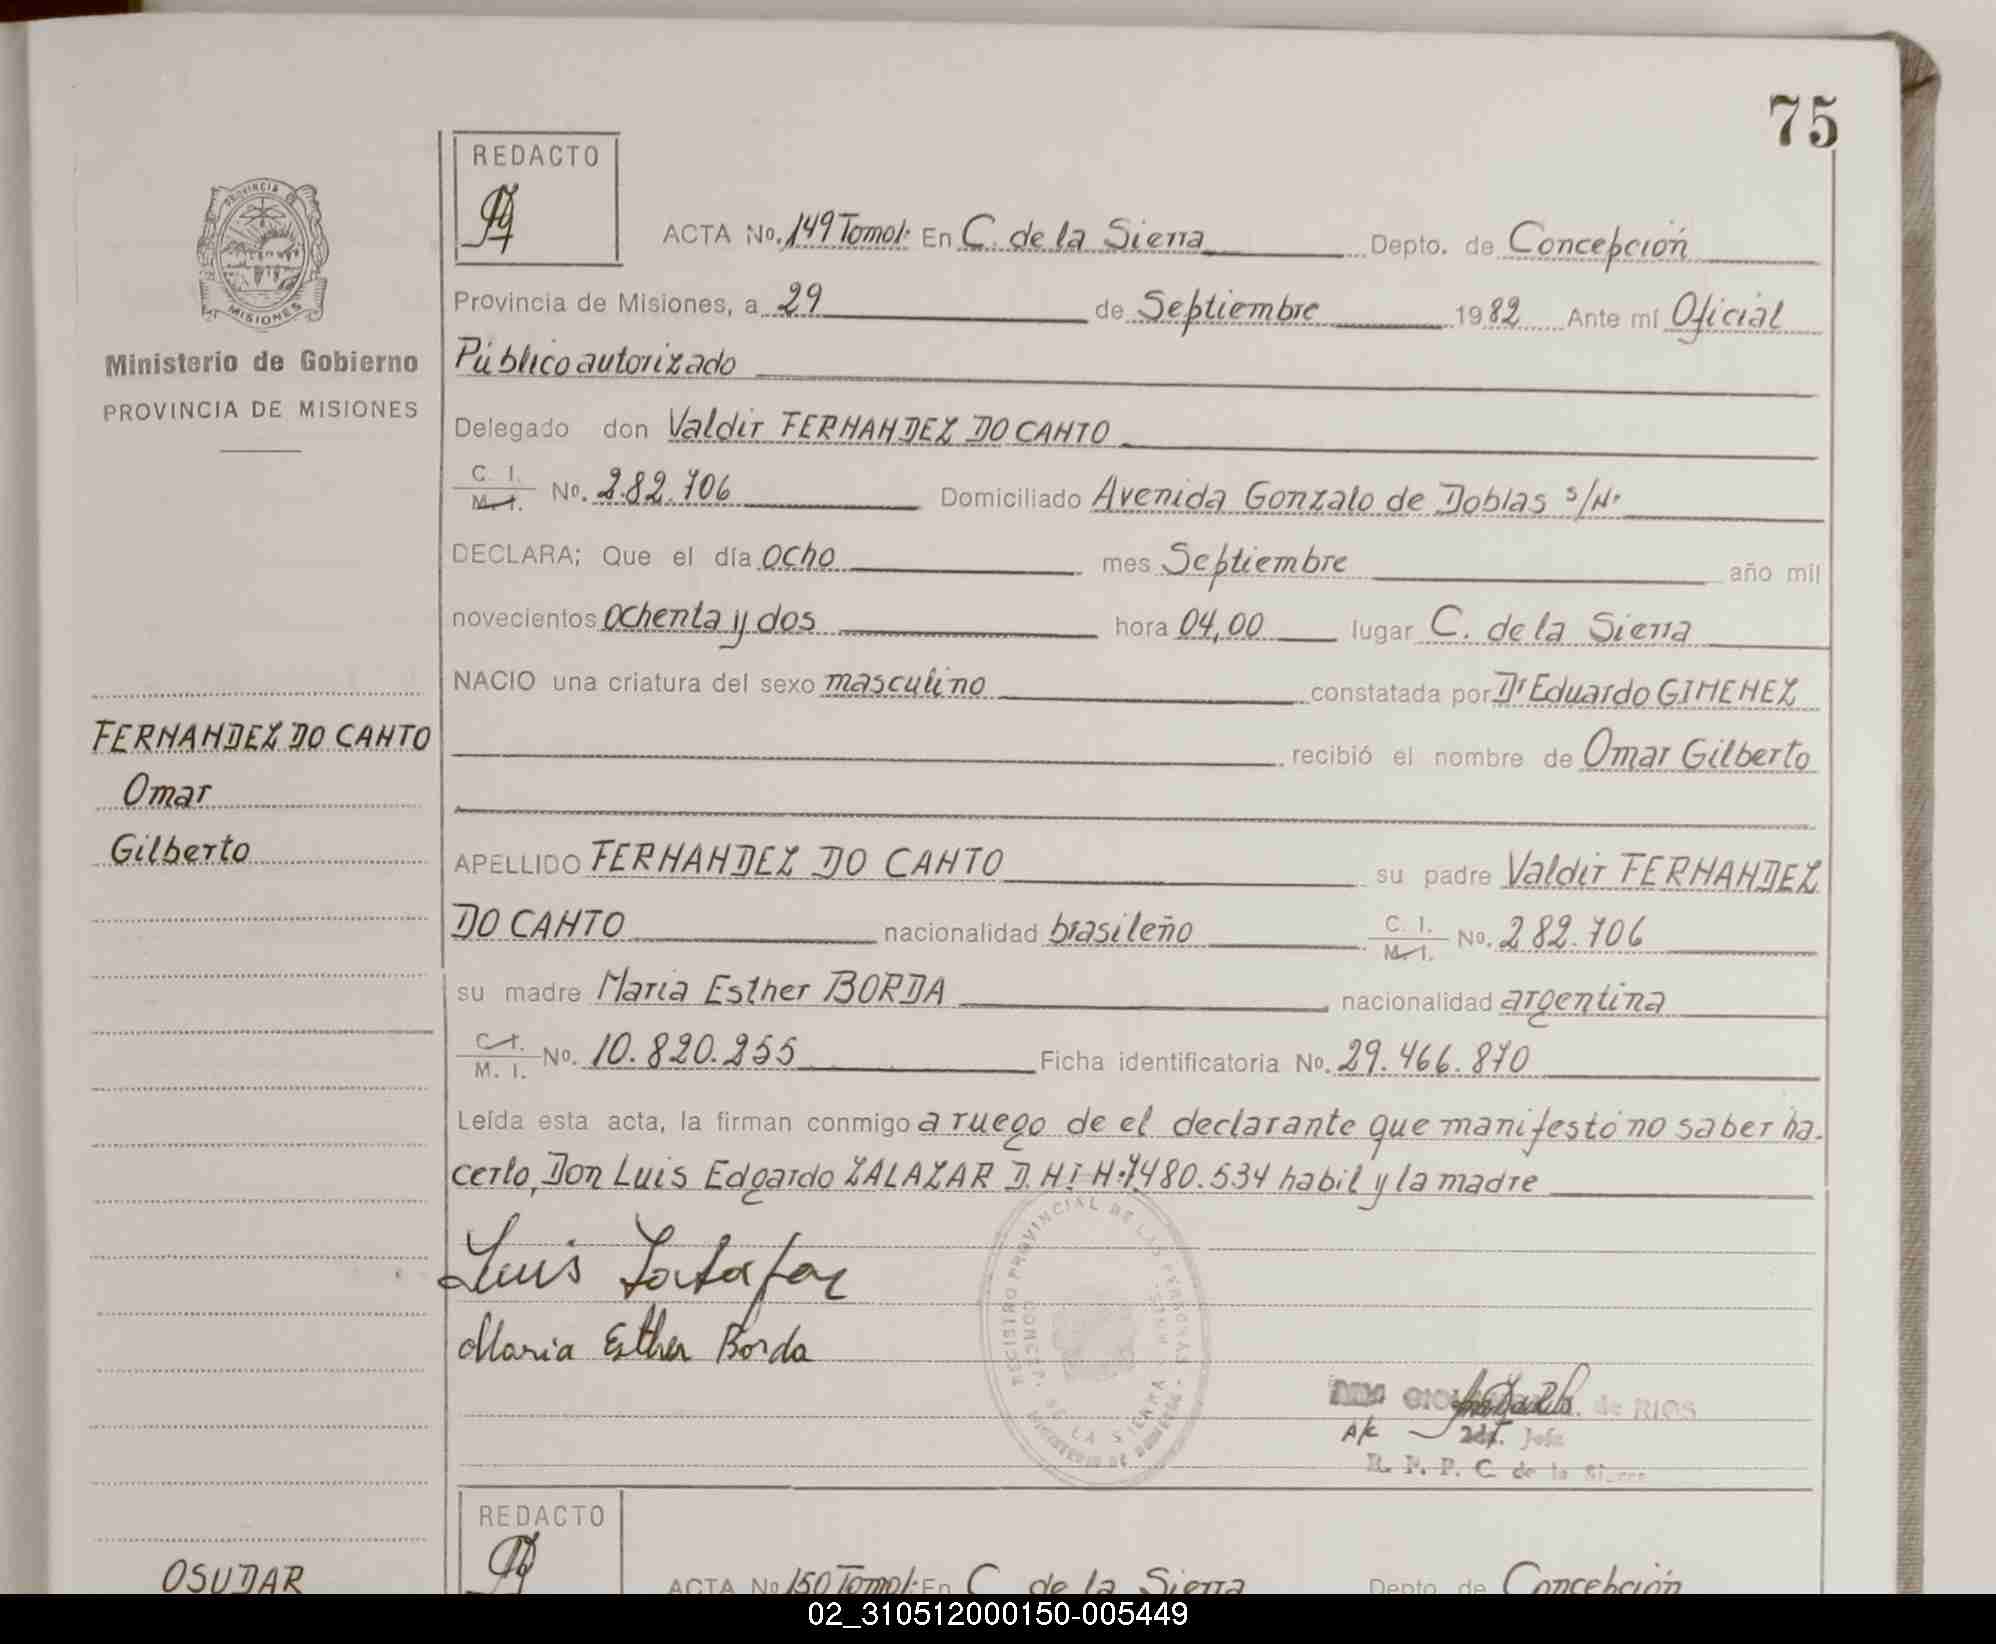 75
REDACTO
ACTA No. 149 Tomo1: En C. de la Sierra Depto. de Concepción
PROVINCIA
MISIONES
Provincia de Misiones, a 29 de Septiembre 1982 Ante mí Oficial
Ministerio de Gobierno
PROVINCIA DE MISIONES
Público autorizado
Delegado don Valdir FERNANDEZ DO CANTO
C. I.
M. I. No. 282.706 Domiciliado Avenida Gonzalo de Doblas s/N.
DECLARA; Que el día ocho mes Septiembre año mil
novecientos ochenta y dos hora 04,00 lugar C. de la Sierra
NACIO una criatura del sexo masculino constatada por Dr Eduardo GIMENEZ
FERNANDEZ DO CANTO
Omar
Gilberto
recibió el nombre de Omar Gilberto
APELLIDO FERNANDEZ DO CANTO su padre Valdir FERNANDEZ
DO CANTO nacionalidad brasileño C. I.
M. I. No. 282.706
su madre Maria Esther BORDA nacionalidad argentina
C. I.
M. I. No. 10.820.255 Ficha identificatoria No. 29.466.870
Leída esta acta, la firman conmigo a ruego de el declarante que manifestó no saber ha-
cerlo, Don Luis Edgardo ZALAZAR D.N.I N:7.480.534 habil y la madre
Luis Zalazar
Maria Esther Borda
REGISTRO PROVINCIAL DE LAS PERSONAS
DE LA SIERRA
MINISTERIO DE GOBIERNO
de RIOS
A/c Jefe
R. P. P. C. de la Sierra
REDACTO
OSUDAR
ACTA No 150 Tomo1: En C. de la Sierra Depto. de Concepción
02_310512000150-005449